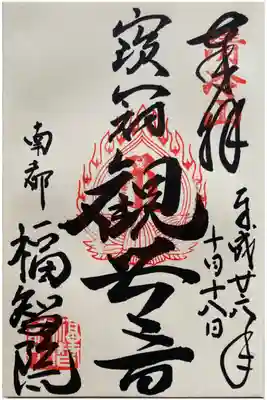 奉拝
平成廿六年
十月十八日
寳冠観世音
南都
福智院